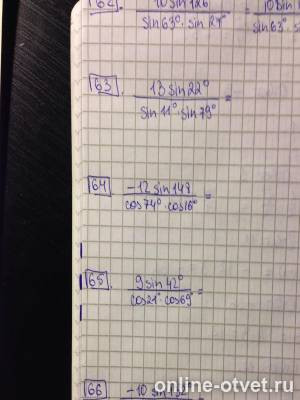 62. 10 sin 126° = 10 sin
sin 63° · sin 27° sin 63° · s
63. 13 sin 22° =
sin 11° · sin 79°
64. -12 sin 148° =
cos 74° · cos 16°
65. 9 sin 42° =
cos 21° · cos 69°
66 -10 sin 132°
online-otvet.ru